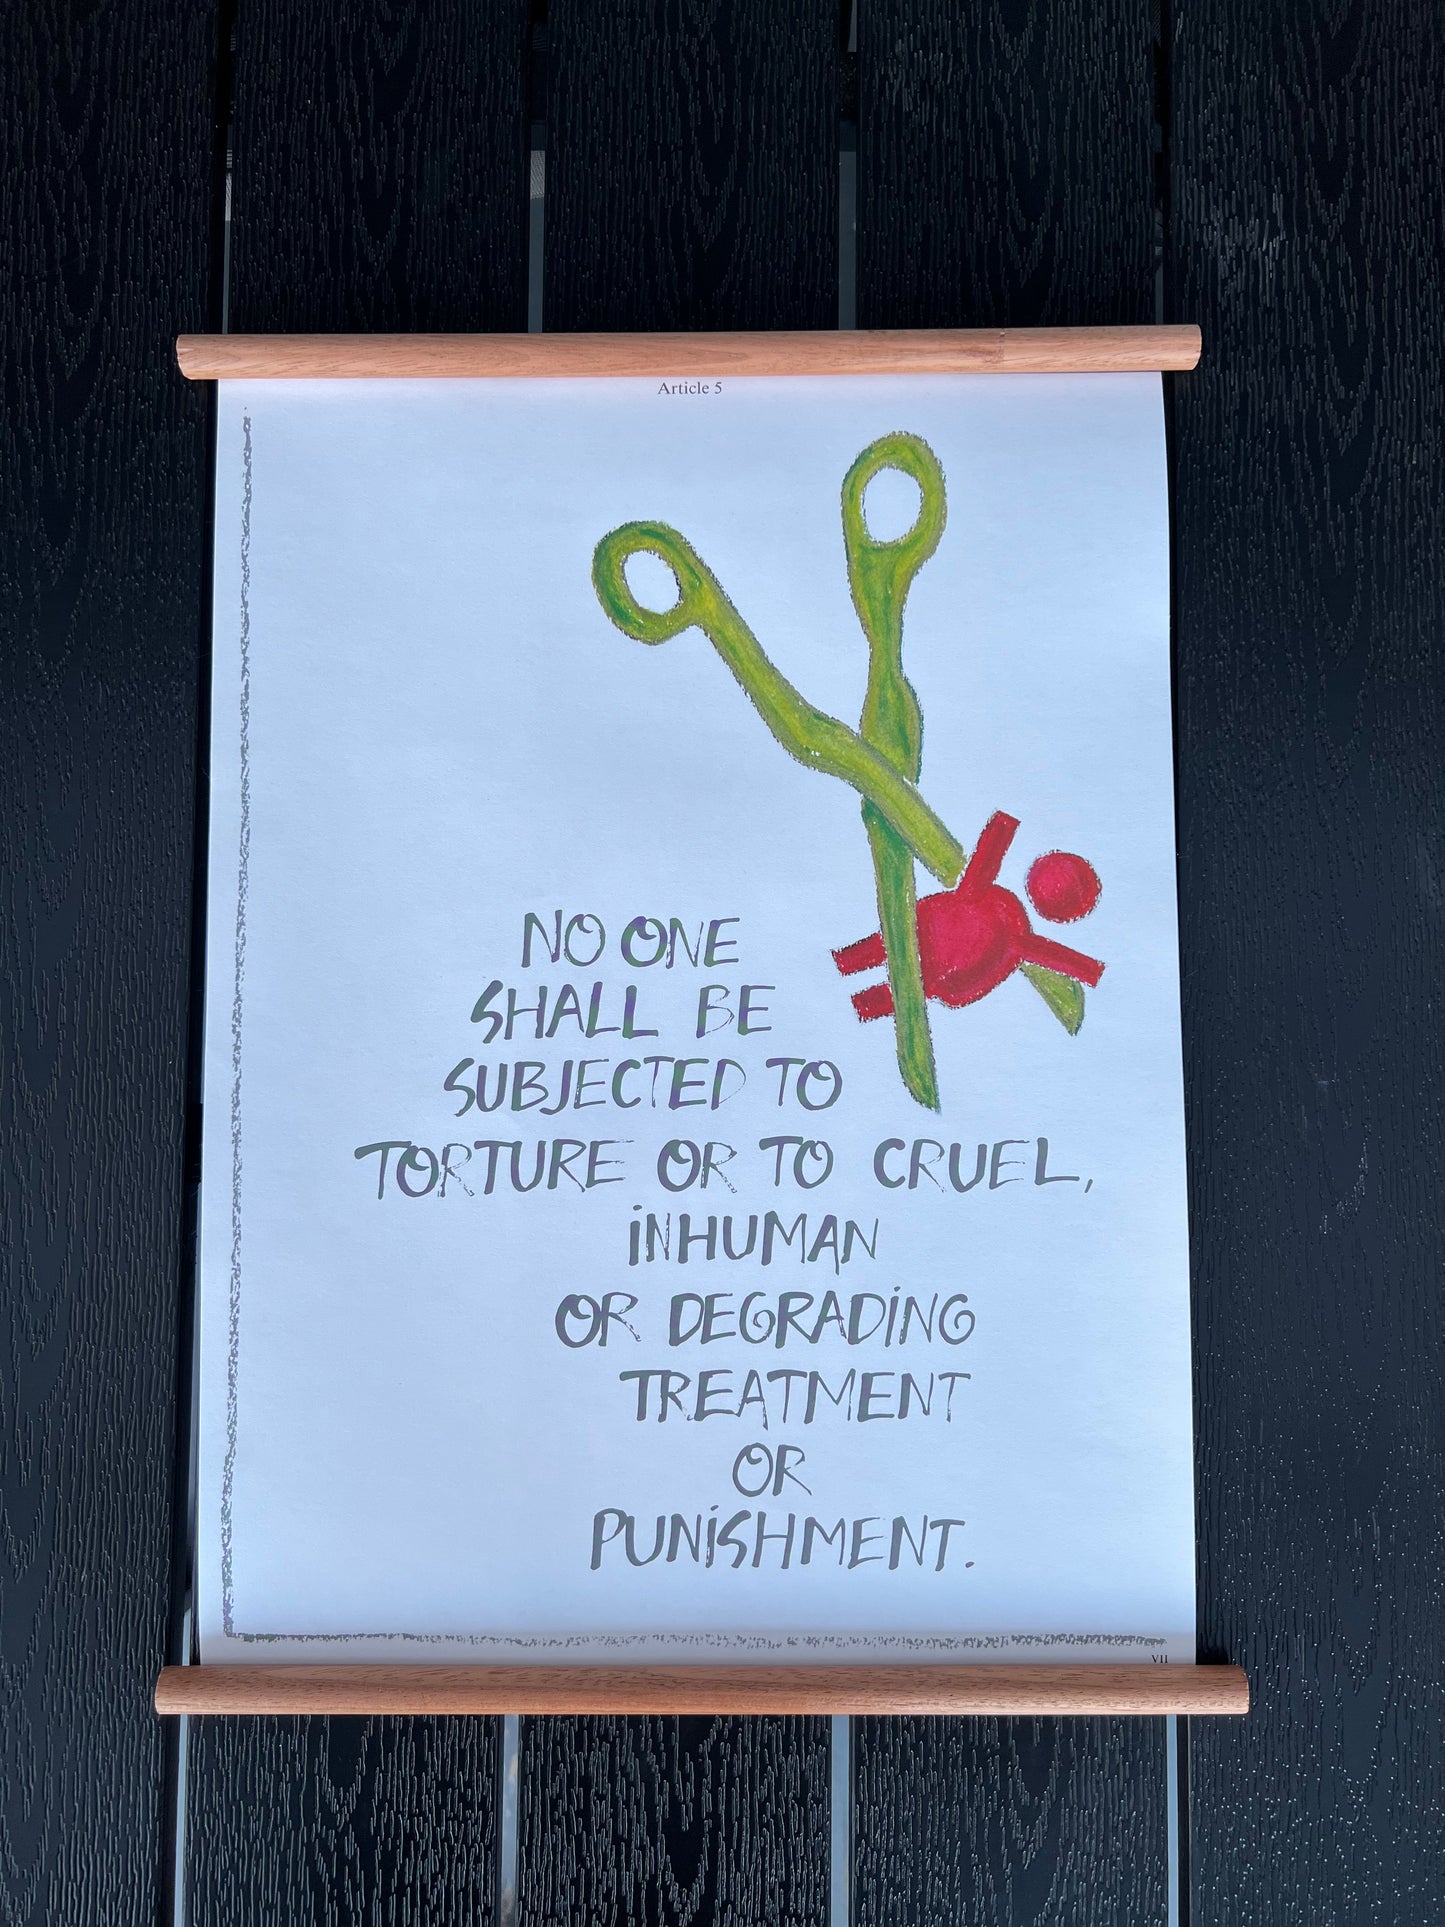 Article 5
NO ONE
SHALL BE
SUBJECTED TO
TORTURE OR TO CRUEL,
iNHUMAN
OR DEGRADiNG
TREATMENT
OR
PUNiSHMENT.
VII